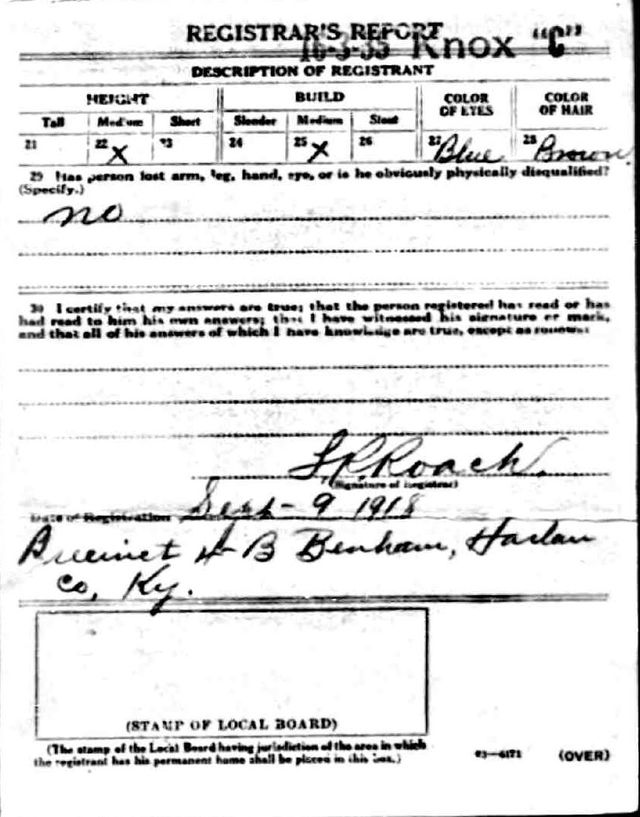 REGISTRAR'S REPORT
16-3-35 Knox "C"
DESCRIPTION OF REGISTRANT
HEIGHT BUILD COLOR OF EYES COLOR OF HAIR
Tall Medium Short Slender Medium Stout
21 22 X 23 24 25 X 26 27 Blue 28 Brown
29 Has person lost arm, leg, hand, eye, or is he obviously physically disqualified?
(Specify.)
no
30 I certify that my answers are true; that the person registered has read or has
had read to him his own answers; that I have witnessed his signature or mark,
and that all of his answers of which I have knowledge are true, except as follows:
Roach
(Signature of Registrar)
Date of Registration Sept - 9 1918
Precinct B Benham, Harlan
Co, Ky.
(STAMP OF LOCAL BOARD)
(The stamp of the Local Board having jurisdiction of the area in which
the registrant has his permanent home shall be placed in this box.)
03—6171 (OVER)